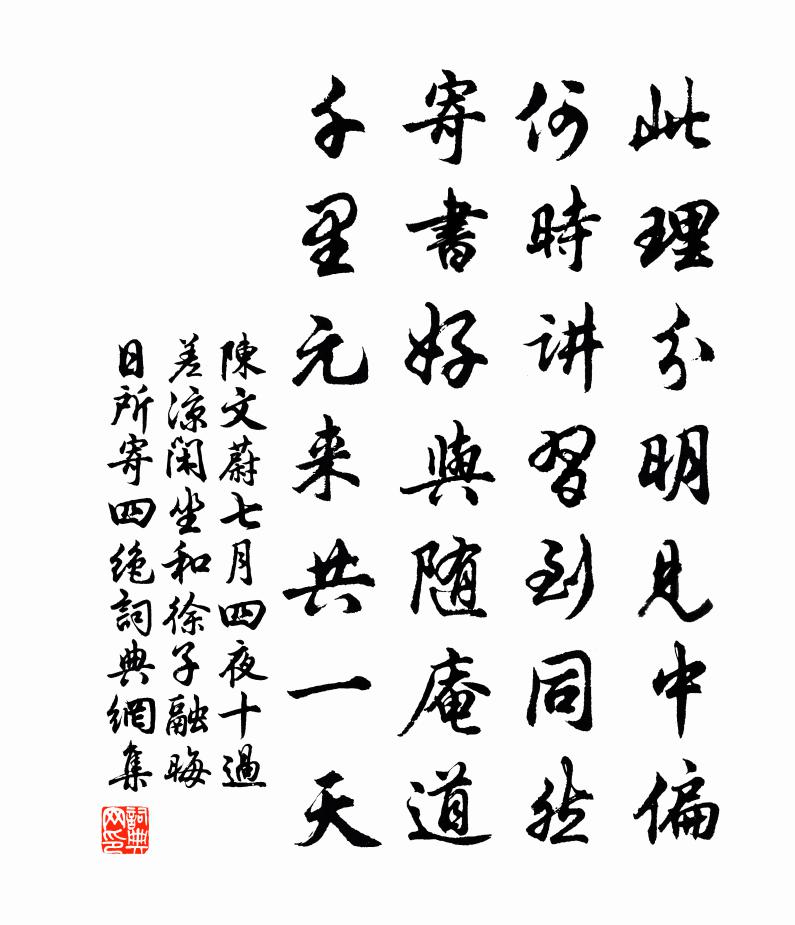 此理分明見中偏
何時讲習到同然
寄書好與随庵道
千里元来共一天
陳文蔚七月四夜十過
差凉閑坐和徐子融晦
日所寄四绝詞典網集
詞典网印